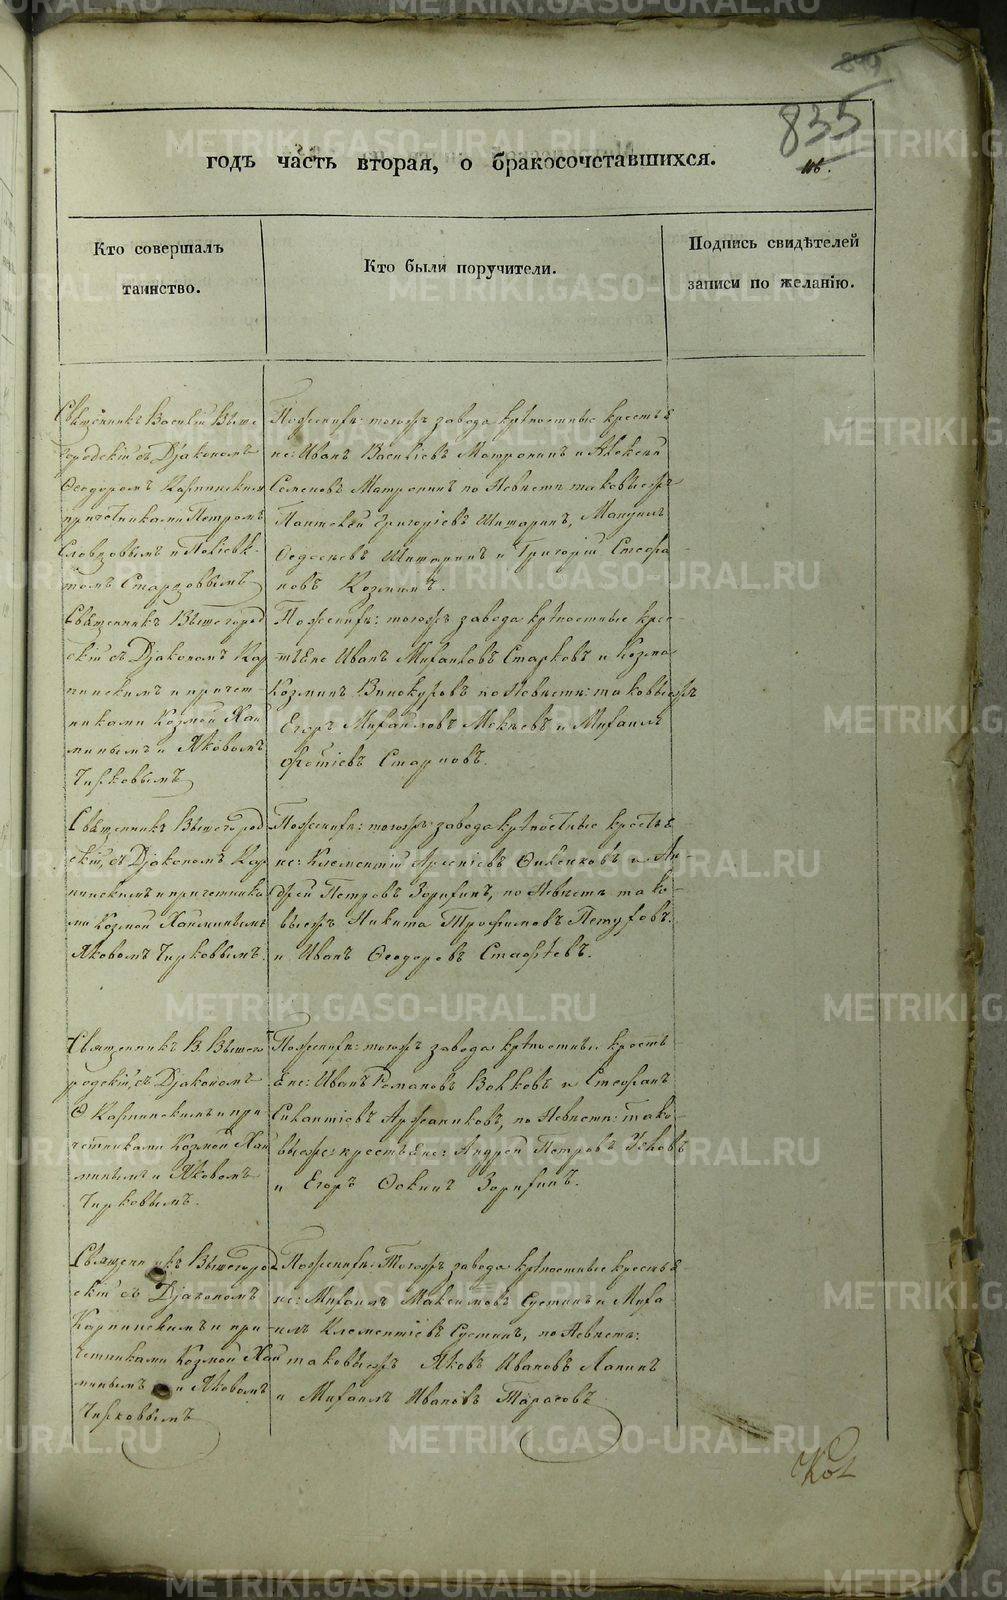 835
годъ часть вторая, о бракосочетавшихся.
Кто совершалъ
таинство.
Кто были поручители.
Подпись свидѣтелей
записи по желанію.
Священникъ Василій Выше
городскій съ Діакономъ
Ѳеодоромъ Карпинскимъ
причетниками Петромъ
Словцовымъ и
Старцовымъ
По женихѣ: тогожъ завода крѣпостные крестья
не: Иванъ Васильевъ Матронинъ и Алексѣй
Семеновъ Матронинъ по Невѣстѣ таковыежъ
Пантелей Григорьевъ Шитаринъ, Мануилъ
Шитаринъ и Григорій Стефа
новъ Козминъ.
Священникъ Вышегород
скій съ Діакономъ Кар
пинскимъ и причет-
никами Козмой Хай
минымъ и Яковомъ
Чирковымъ
По женихѣ: тогожъ завода крѣпостные крес-
тьяне Иванъ Михайловъ Старковъ и Козма
Козминъ Винокуровъ по Невѣстѣ: таковыежъ
Егоръ Михайловъ и Михаилъ
Фотіевъ Старковъ.
Священникъ Вышегород
скій, съ Діакономъ Кар
пинскимъ и причетника
ми Козмой Хайминымъ
Яковомъ Чирковымъ.
По женихѣ: тогожъ завода крѣпостные крестья
не: Клементій Арсеніевъ и Ан
дрей Петровъ Зорихинъ, по Невѣстѣ тако-
выежъ Никита Трофимовъ Петуховъ
и Иванъ Ѳеодоровъ
Священникъ В. Вышего
родскій, съ Діакономъ
Ѳ Карпинскимъ и при
четниками Козмой Хай
минымъ и Яковомъ
Чирковымъ.
По женихѣ: тогожъ завода крѣпостные кресть
яне: Иванъ Романовъ Волковъ и Стефанъ
по Невѣстѣ: тако-
выеже крестьяне: Андрей Петровъ Усковъ
и Егоръ Оскинъ Зорихинъ.
Священникъ Вышегород
скій съ Діакономъ
Карпинскимъ и при-
четниками Козмой Хай
минымъ и Яковомъ
Чирковымъ
По женихѣ: Тогожъ завода крѣпостные крестья
не: Михаилъ Максимовъ Сустинъ и Миха
илъ Клементіевъ Сустинъ, по Невѣстѣ:
таковыежъ Яковъ Ивановъ Лапинъ
и Михаилъ Ивановъ Тарасовъ
METRIKI.GASO-URAL.RU